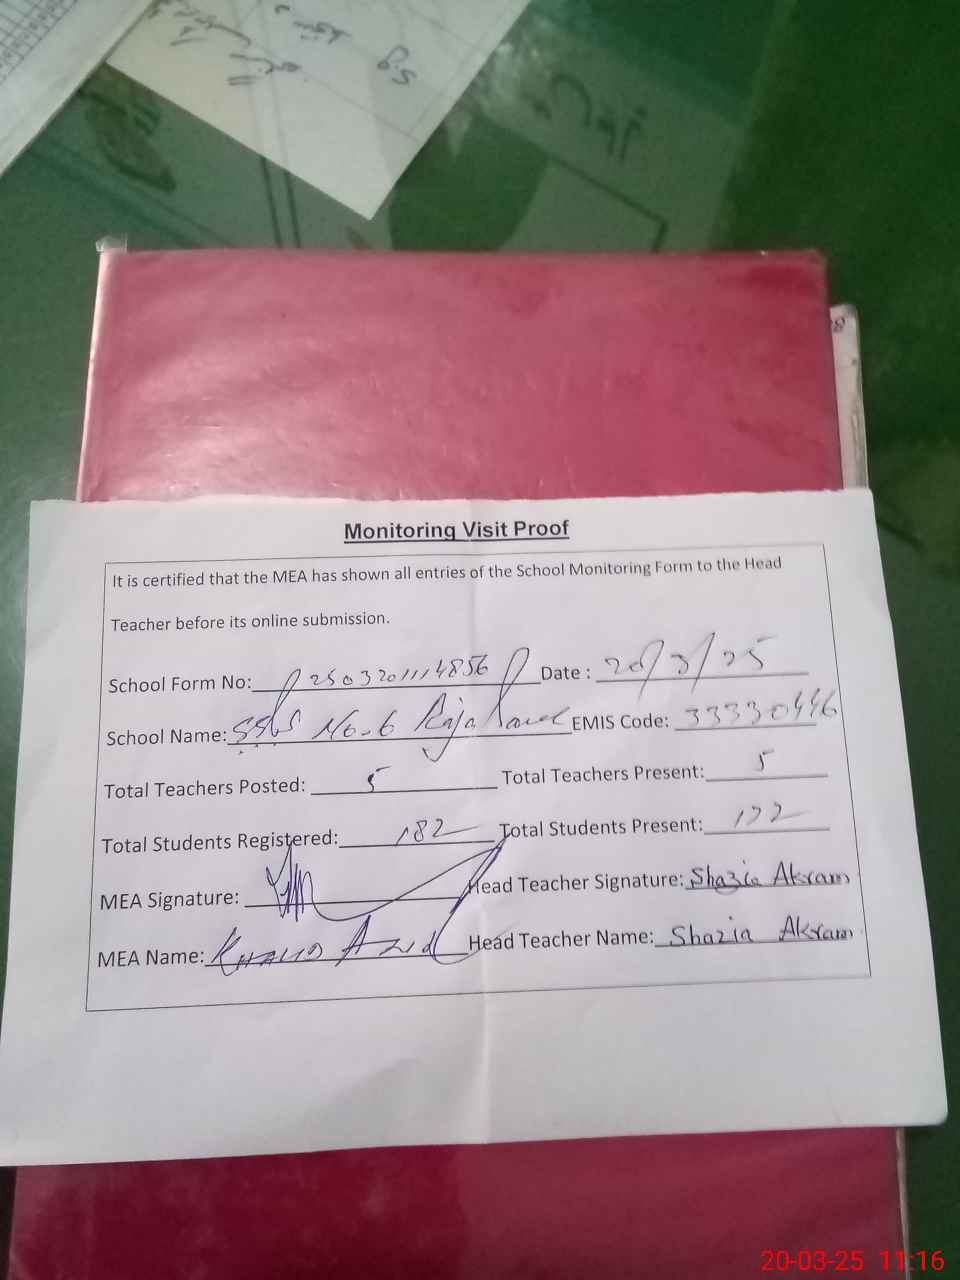 Monitoring Visit Proof
It is certified that the MEA has shown all entries of the School Monitoring Form to the Head
Teacher before its online submission.
School Form No: 2503201114856 Date : 20/3/25
School Name: No. 6 EMIS Code: 33330446
Total Teachers Posted: 5 Total Teachers Present: 5
Total Students Registered: 182 Total Students Present:
MEA Signature: Head Teacher Signature: Shazia Akram
MEA Name: Khalid Head Teacher Name: Shazia Akram
20-03-25 11:16